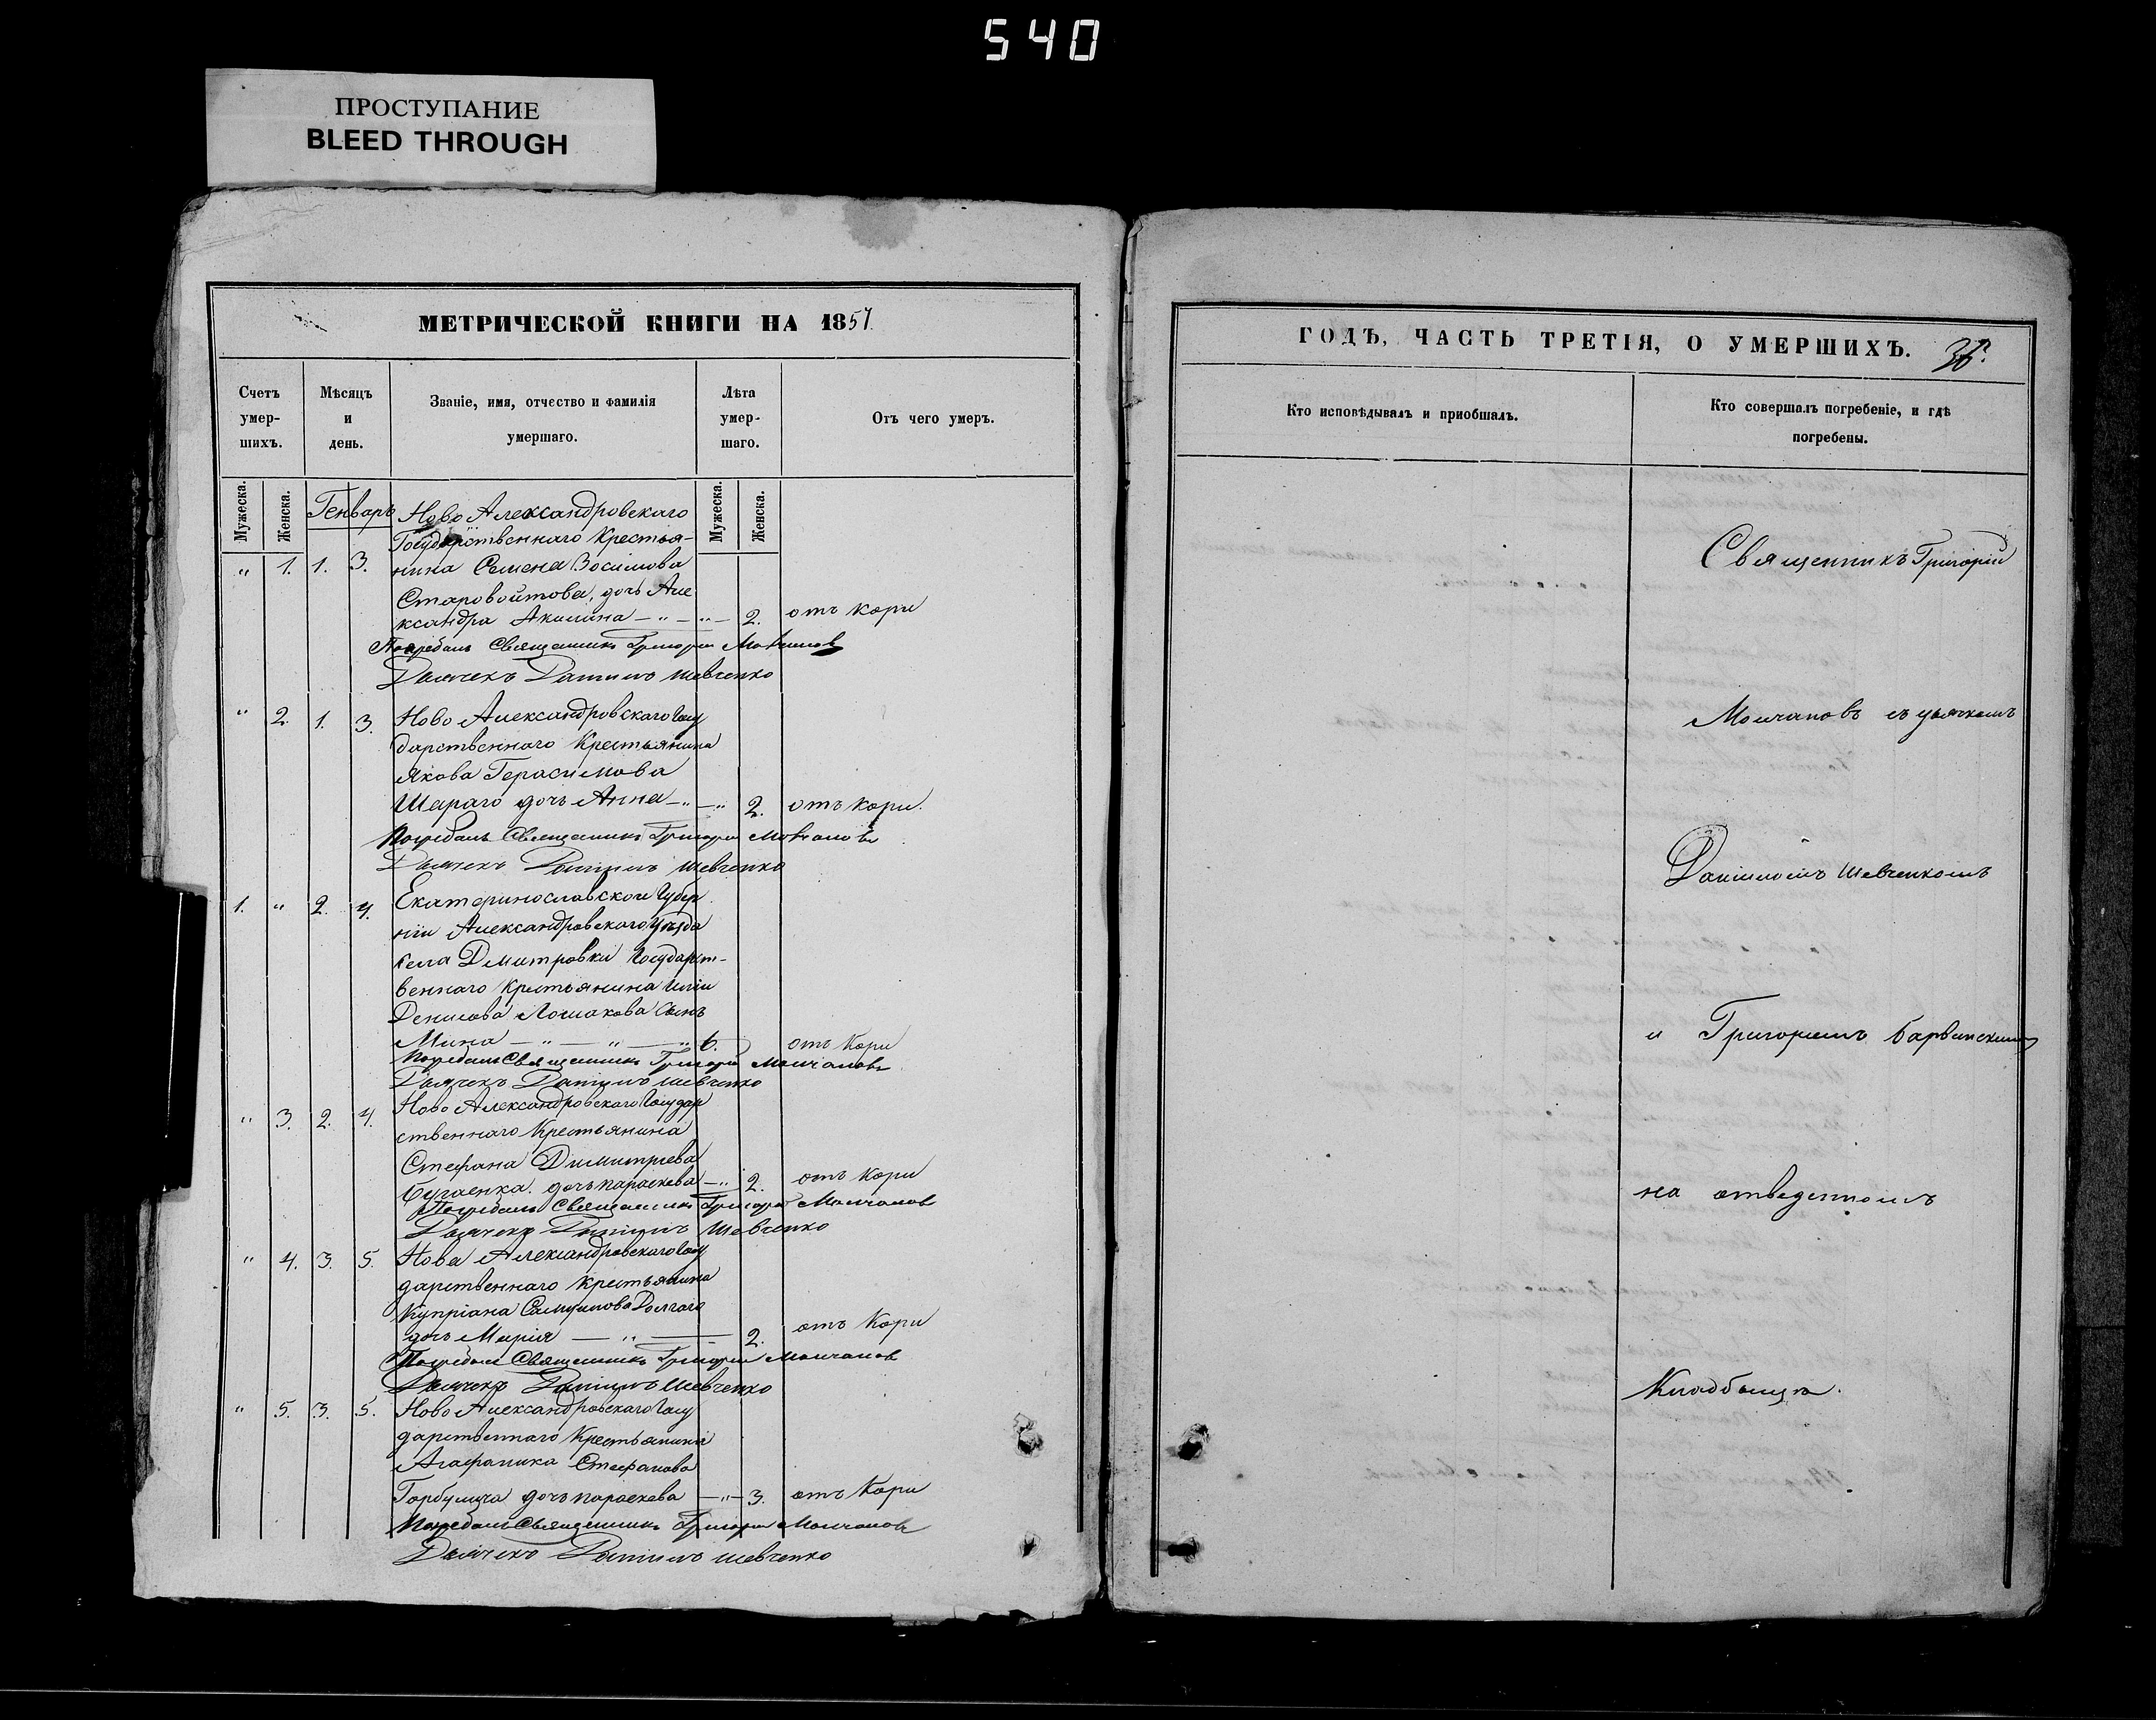 540
ПРОСТУПАНИЕ
BLEED THROUGH
МЕТРИЧЕСКОЙ КНИГИ НА 1857.
Счетъ умер-шихъ.
Мѣсяцъ и день.
Званіе, имя, отчество и фамилія умершаго.
Лѣта умер-шаго.
Отъ чего умеръ.
Мужеска. Женска. Генварь Мужеска. Женска.
Ново Александровскаго
Государственнаго Крестья-
" 1. 1. 3. нина Семена Зосимова
Старовойтова, дочь Але
ксандра Акилина — " — " — 2. отъ кори
Погребалъ Священникъ Григорій Молчановъ
Дьячекъ Даніилъ Шевченко
" 2. 1. 3. Ново Александровскаго Госу
дарственнаго Крестьянина
Якова Герасимова
Шараго дочь Анна — " — " 2. отъ кори.
Погребалъ Священникъ Григорій Молчановъ
Дьячекъ Даніилъ Шевченко
1. " 2. 4. Екатеринославской Губер
ніи Александровскаго Уѣзда
села Дмитровки Государст-
веннаго Крестьянина Иліи
Денисова Лошакова сынъ
Мина — " — " — " 6. отъ Кори
Погребалъ Священникъ Григорій Молчановъ
Дьячекъ Даніилъ Шевченко
" 3. 2. 4. Ново Александровскаго Государ
ственнаго Крестьянина
Стефана Димитріева
Бугаенка. дочь параскева — " 2. отъ Кори
Погребалъ Священникъ Григорій Молчановъ
Дьячекъ Даніилъ Шевченко
" 4. 3. 5. Ново Александровскаго Госу
дарственнаго Крестьянина
Купріана Долгаго
дочь Марія — " — 2. отъ Кори
Погребалъ Священникъ Григорій Молчановъ
Дьячекъ Даніилъ Шевченко
" 5. 3. 5. Ново Александровскаго Госу
дарственнаго Крестьянина
Стефанова
дочь параскева — " — 3. отъ Кори
Погребалъ Священникъ Григорій Молчановъ
Дьячекъ Даніилъ Шевченко
ГОДЪ, ЧАСТЬ ТРЕТІЯ, О УМЕРШИХЪ.
Кто исповѣдывалъ и пріобщалъ.
Кто совершалъ погребеніе, и гдѣ
погребены.
Священникъ Григорій
Молчановъ съ дьячкомъ
Даніиломъ Шевченкомъ
и Григоріемъ Барвинскимъ
на отведенномъ
Кладбищѣ.